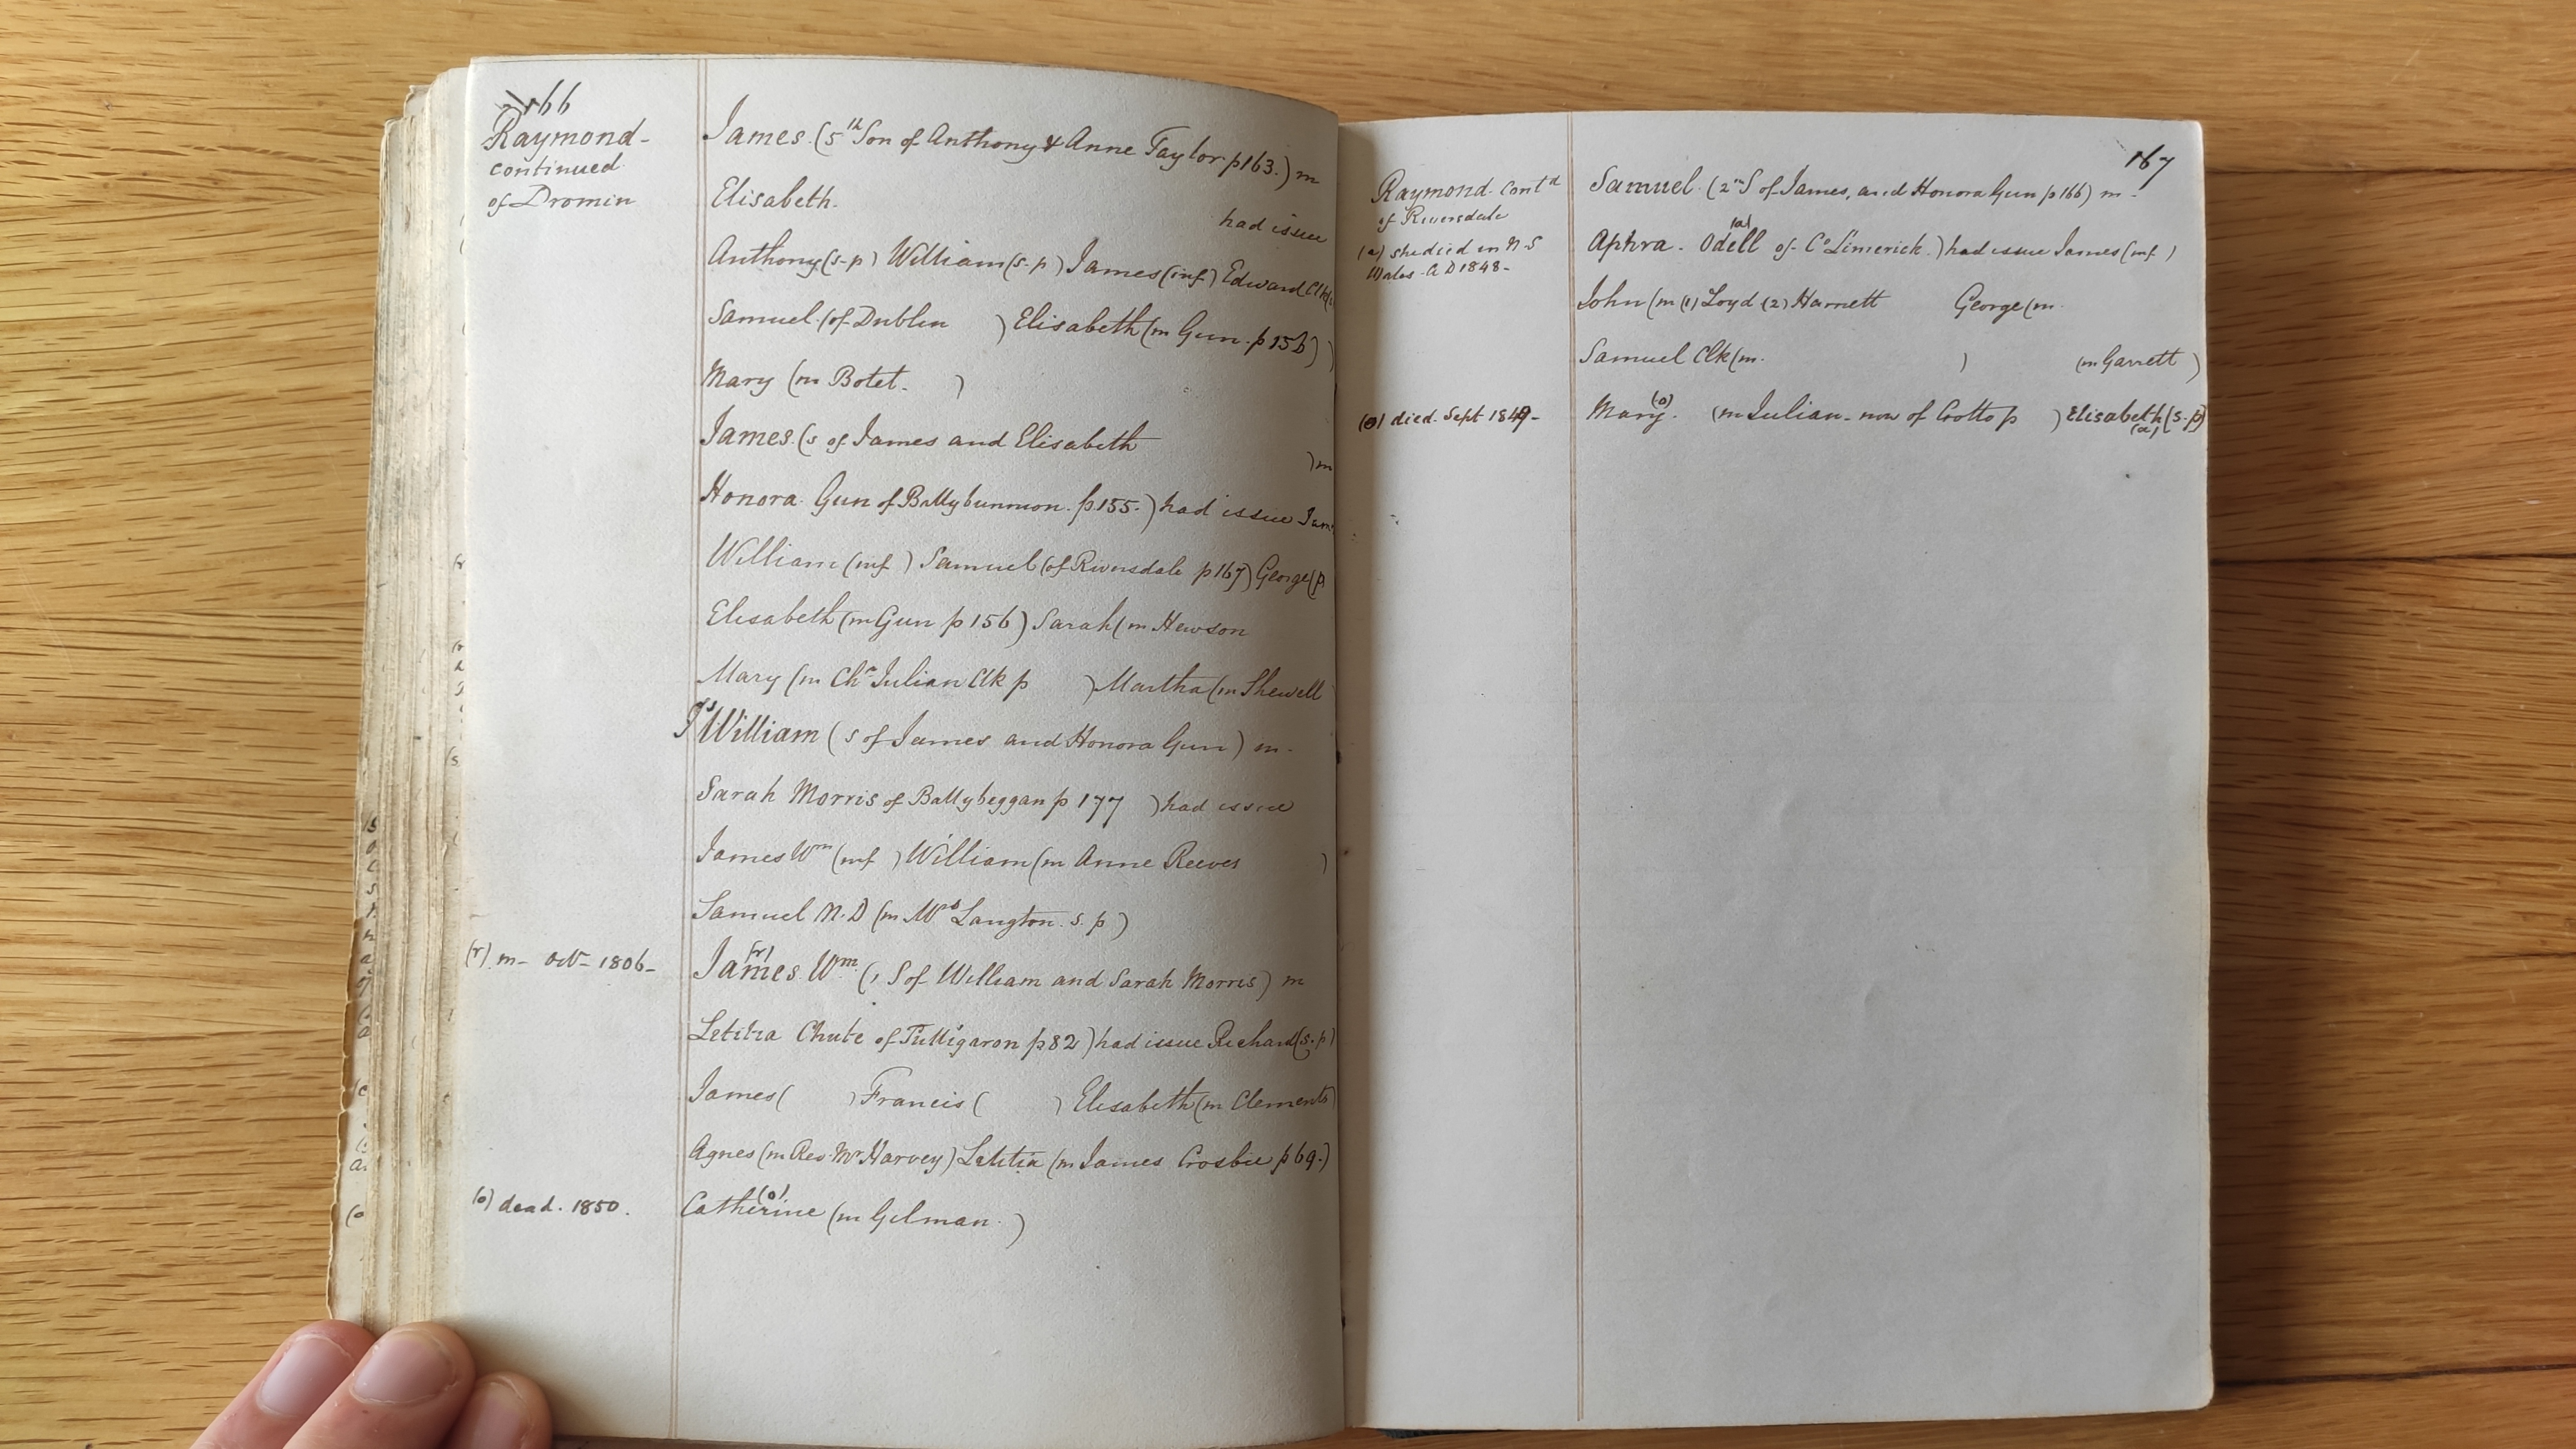 166
Raymond-
continued
of Dromin
James (5th Son of Anthony & Anne Taylor p163.) m
Elisabeth.
had issue
Anthony (s-p) William (s-p) James (inf) Edward Clk(
Samuel (of Dublin ) Elisabeth (m Gun. p156)
Mary (m Botet. )
James (s of James and Elisabeth )m
Honora Gun of Ballybunnion. p.155.) had issue Jam
William (inf ) Samuel (of Riversdale p167) George (p
Elisabeth (m Gun p156) Sarah (m Hewson
Mary (m Chs Julian Clk p ) Martha (m Shewell
William (s of James and Honora Gun) m-
Sarah Morris of Ballybeggan p177 ) had issue
James Wm (inf ) William (m Anne Reeves )
Samuel M.D (m Mrs Langton. s.p )
(r) m- Octr 1806-
(r)
James Wm (1 S of William and Sarah Morris) m
Letitia Chute of Tulligaron p82 ) had issue Richard (s.p)
James ( ) Francis ( ) Elisabeth (m Clements
Agnes (m Rev. Mr Harvey) Letitia (m James Crosbie p69.)
(o) dead. 1850.
(o)
Catherine (m Gilman. )
167
Raymond. Contd
of Riversdale
(a) she died in N-S
Wales. A D 1848-
Samuel. (2nd S of James, and Honora Gun p166) m-
(a)
Aphra. Odell of Co Limerick.) had issue James (inf )
John (m (1) Loyd (2) Harnett George (m.
Samuel Clk (m. ) (m Garrett )
(o) died. Sept 1849-
(o)
Mary. (m Julian- now of Crotto p ) Elisabeth (s-p)
(a)